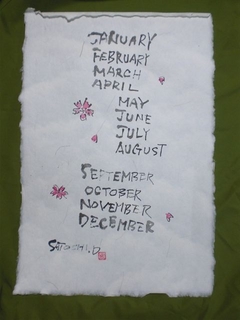 JANUARY
FEBRUARY
MARCH
APRIL
MAY
JUNE
JULY
AUGUST
SEPTEMBER
OCTOBER
NOVEMBER
DECEMBER
SATOSHI.O